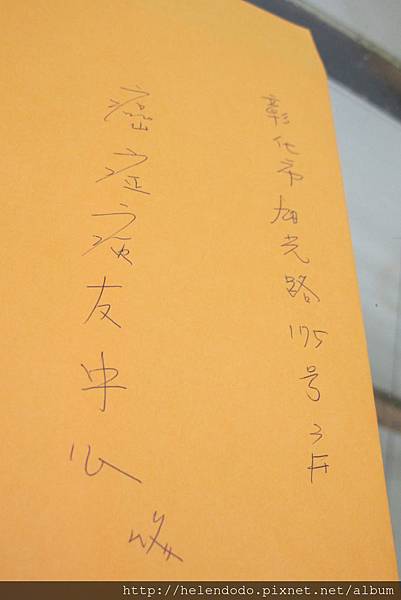 彰化市旭光路175号3F
癌症病友中心
http://helendodo.pixnet.net/album